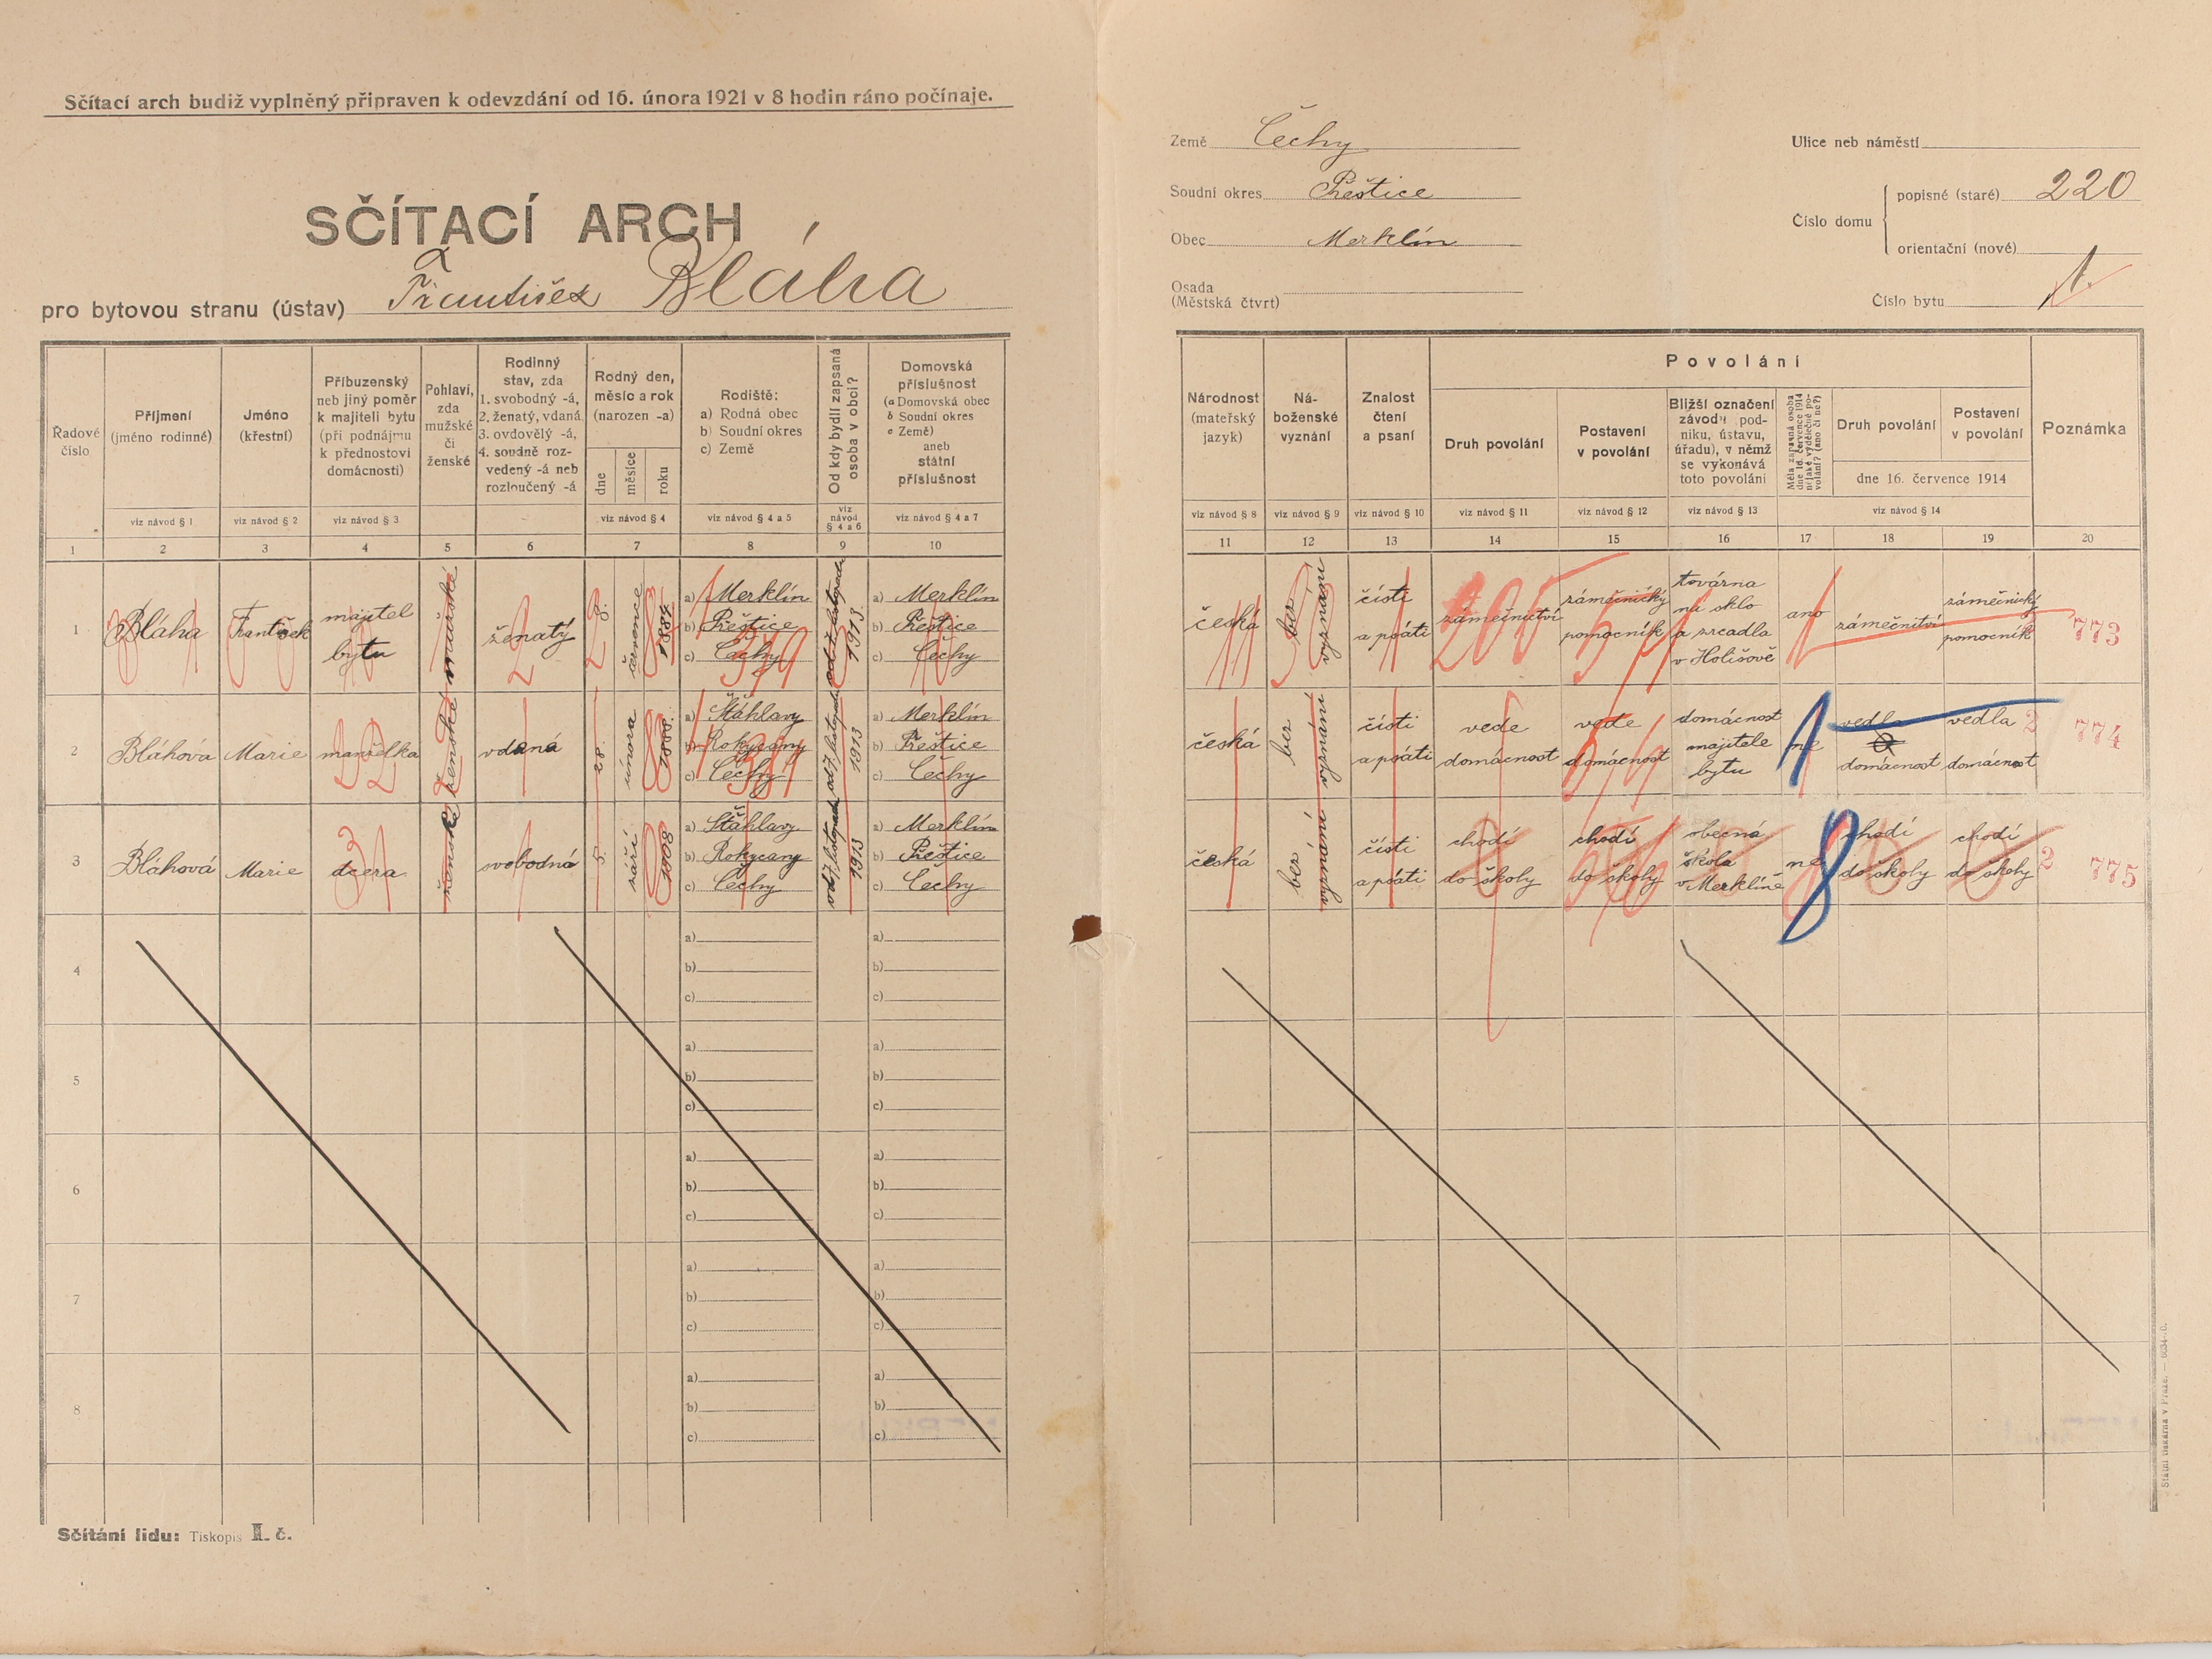 Sčítací arch budiž vyplněný připraven k odevzdání od 16. února 1921 v 8 hodin ráno počínaje.
SČÍTACÍ ARCH
pro bytovou stranu (ústav) František Bláha
Země Čechy
Soudní okres Přeštice
Obec Merklín
Osada
(Městská čtvrť)
Ulice neb náměstí
Číslo domu
popisné (staré) 220
orientační (nové)
Číslo bytu 1.
Řadové číslo
Příjmení (jméno rodinné)
Jméno (křestní)
Příbuzenský neb jiný poměr k majiteli bytu (při podnájmu k přednostovi domácnosti)
Pohlaví, zda mužské či ženské
Rodinný stav, zda 1. svobodný -á, 2. ženatý, vdaná, 3. ovdovělý -á, 4. soudně rozvedený -á neb rozloučený -á
Rodný den, měsíc a rok (narozen -a)
dne měsíce roku
Rodiště: a) Rodná obec b) Soudní okres c) Země
Od kdy bydlí zapsaná osoba v obci?
Domovská příslušnost (a Domovská obec b Soudní okres c Země) aneb státní příslušnost
viz návod § 1 viz návod § 2 viz návod § 3 viz návod § 4 viz návod § 4 a 5 viz návod § 4 a 6 viz návod § 4 a 7
1 2 3 4 5 6 7 8 9 10
Národnost (mateřský jazyk)
Náboženské vyznání
Znalost čtení a psaní
Povolání
Druh povolání
Postavení v povolání
Bližší označení závodu podniku, ústavu, úřadu), v němž se vykonává toto povolání
Měla zapsaná osoba dne 16. července 1914 nějaké výdělečné povolání? (ano či ne?)
Druh povolání
Postavení v povolání
dne 16. července 1914
Poznámka
viz návod § 8 viz návod § 9 viz návod § 10 viz návod § 11 viz návod § 12 viz návod § 13 viz návod § 14
11 12 13 14 15 16 17 18 19 20
1 Bláha František majitel bytu mužské ženatý 23. července 1884
a) Merklín
b) Přeštice
c) Čechy
od 7. listopadu 1913
a) Merklín
b) Přeštice
c) Čechy
česká bez vyznání čísti a psáti zámečnictví zámečnický pomocník továrna na sklo a zrcadla v Holišově ano zámečnictví zámečnický pomocník 773
2 Bláhová Marie manželka ženské vdaná 28. února 1888.
a) Štáhlavy
b) Rokycany
c) Čechy
od 7. listopadu 1913
a) Merklín
b) Přeštice
c) Čechy
česká bez vyznání čísti a psáti vede domácnost vede domácnost domácnost majitele bytu ne vedla domácnost vedla domácnost 2 774
3 Bláhová Marie dcera ženské svobodná 5. září 1908
a) Štáhlavy
b) Rokycany
c) Čechy
od 7. listopadu 1913
a) Merklín
b) Přeštice
c) Čechy
česká bez vyznání čísti a psáti chodí do školy chodí do školy obecná škola v Merklíně ne chodí do školy chodí do školy 2 775
4 a) b) c) a) b) c)
5 a) b) c) a) b) c)
6 a) b) c) a) b) c)
7 a) b) c) a) b) c)
8 a) b) c) a) b) c)
Sčítání lidu: Tiskopis II. č.
Státní tiskárna v Praze.